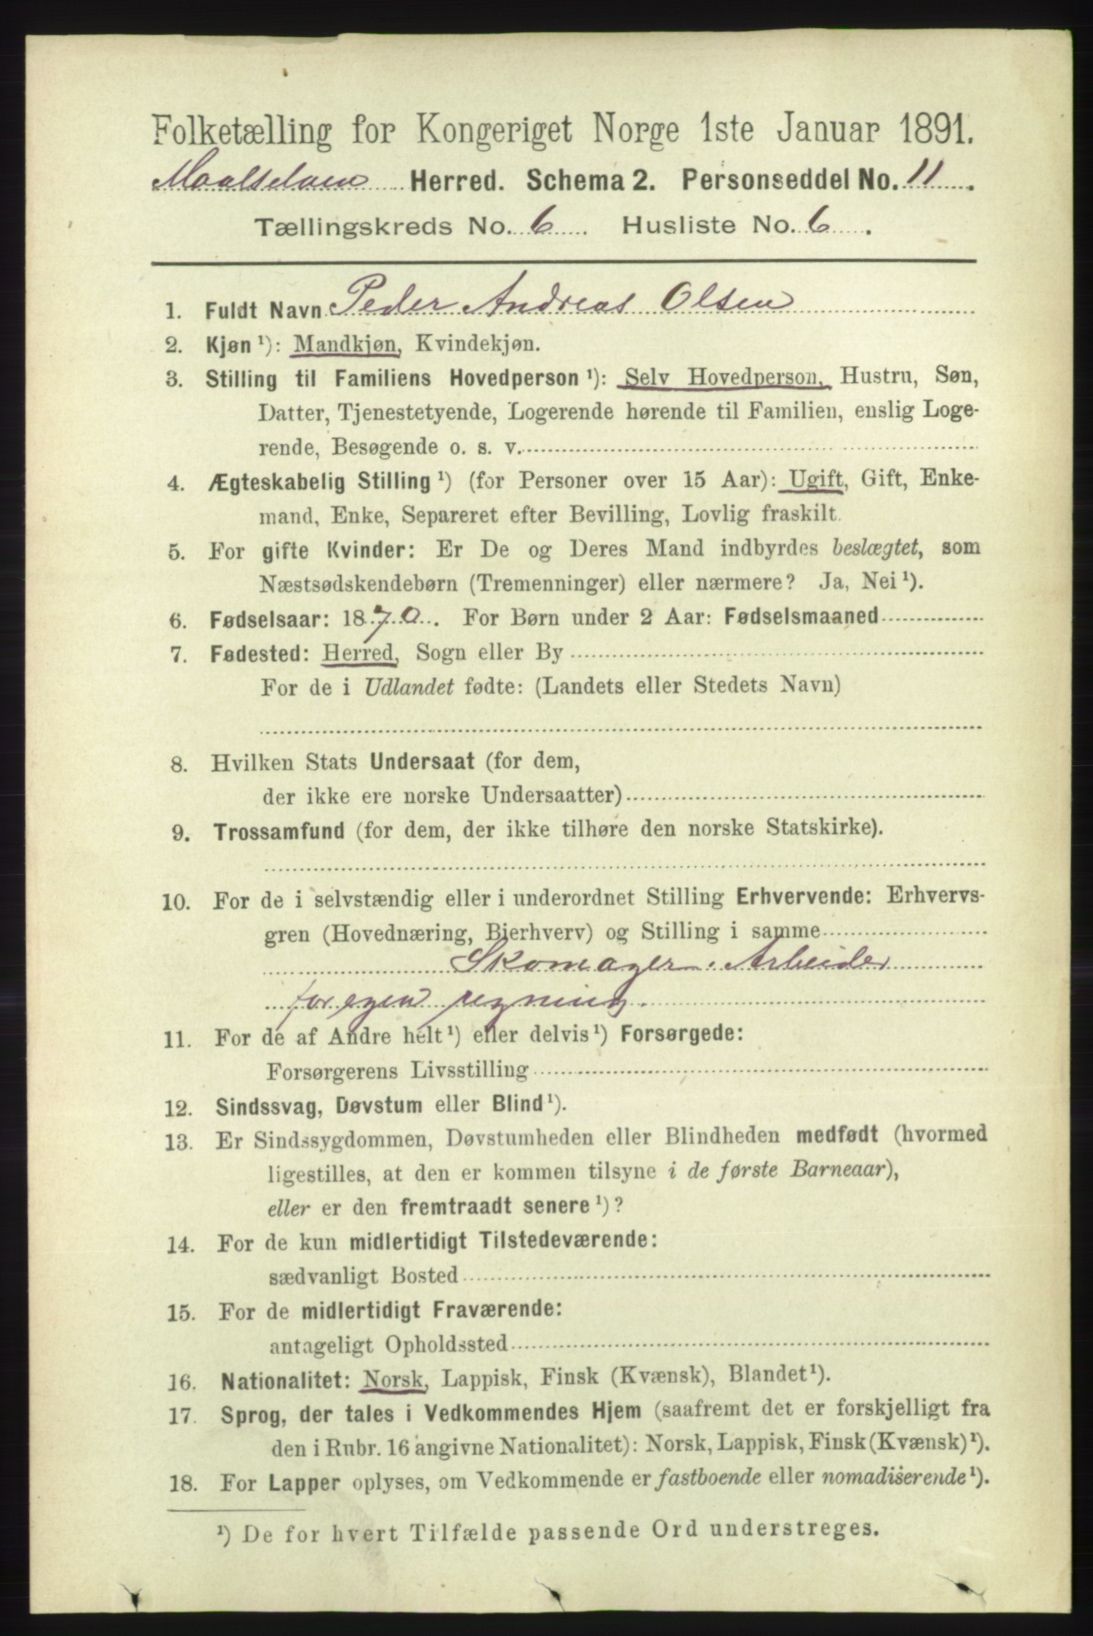 Folketælling for Kongeriget Norge 1ste Januar 1891.
Maalselven Herred. Schema 2. Personseddel No. 11.
Tællingskreds No. 6. Husliste No. 6.
1. Fuldt Navn Peder Andreas Olsen
2. Kjøn ¹): Mandkjøn, Kvindekjøn.
3. Stilling til Familiens Hovedperson ¹): Selv Hovedperson, Hustru, Søn,
Datter, Tjenestetyende, Logerende hørende til Familien, enslig Loge-
rende, Besøgende o. s. v.
4. Ægteskabelig Stilling ¹) (for Personer over 15 Aar): Ugift, Gift, Enke-
mand, Enke, Separeret efter Bevilling, Lovlig fraskilt.
5. For gifte Kvinder: Er De og Deres Mand indbyrdes beslægtet, som
Næstsødskendebørn (Tremenninger) eller nærmere? Ja, Nei ¹).
6. Fødselsaar: 1870. For Børn under 2 Aar: Fødselsmaaned
7. Fødested: Herred, Sogn eller By
For de i Udlandet fødte: (Landets eller Stedets Navn)
8. Hvilken Stats Undersaat (for dem,
der ikke ere norske Undersaatter)
9. Trossamfund (for dem, der ikke tilhøre den norske Statskirke).
10. For de i selvstændig eller i underordnet Stilling Erhvervende: Erhvervs-
gren (Hovednæring, Bierhverv) og Stilling i samme
Skomager. Arbeider
for egen regning.
11. For de af Andre helt ¹) eller delvis ¹) Forsørgede:
Forsørgerens Livsstilling
12. Sindssvag, Døvstum eller Blind ¹).
13. Er Sindssygdommen, Døvstumheden eller Blindheden medfødt (hvormed
ligestilles, at den er kommen tilsyne i de første Barneaar),
eller er den fremtraadt senere ¹)?
14. For de kun midlertidigt Tilstedeværende:
sædvanligt Bosted
15. For de midlertidigt Fraværende:
antageligt Opholdssted
16. Nationalitet: Norsk, Lappisk, Finsk (Kvænsk), Blandet ¹).
17. Sprog, der tales i Vedkommendes Hjem (saafremt det er forskjelligt fra
den i Rubr. 16 angivne Nationalitet): Norsk, Lappisk, Finsk (Kvænsk) ¹).
18. For Lapper oplyses, om Vedkommende er fastboende eller nomadiserende ¹).
¹) De for hvert Tilfælde passende Ord understreges.